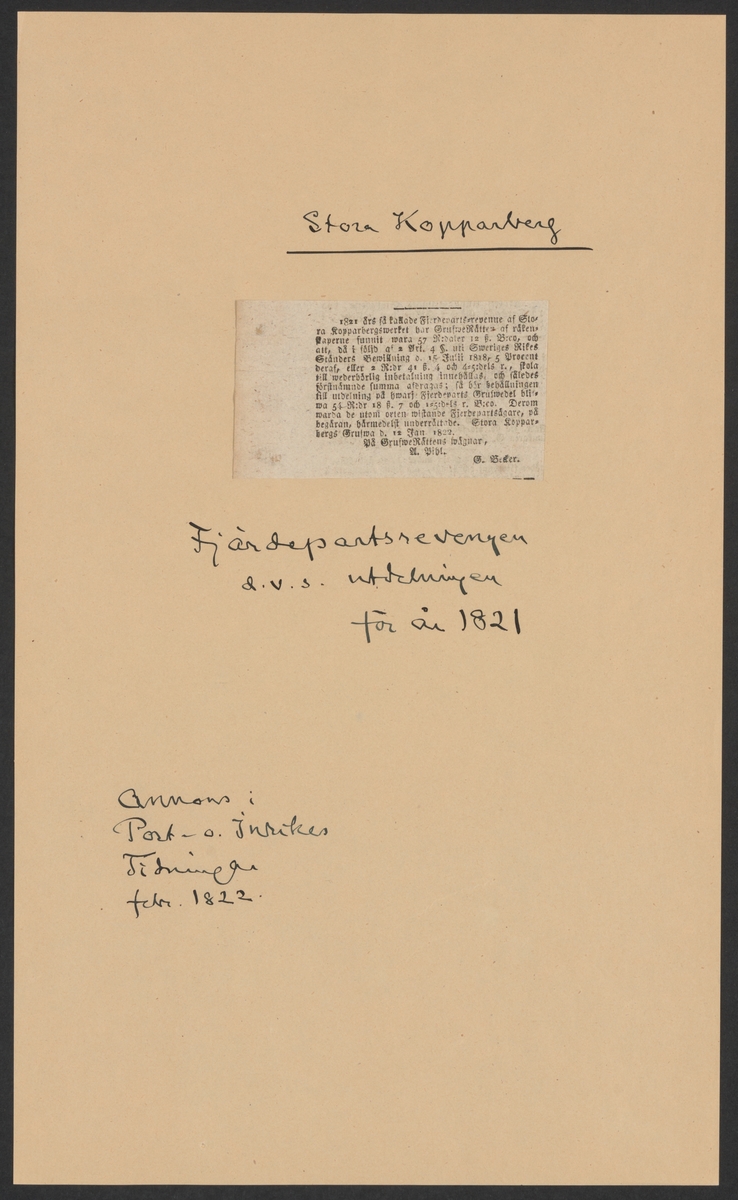 Stora Kopparberg
1821 års så kallade Fjerdeparts-revenue af Sto-
ra Kopparbergswerket har GrufweRätten af räken-
skaperne funnit wara 57 R:daler 12 ß. B:co, och
att, då i följd af 2 Art. 4 §. uti Sweriges Rikes
Ständers Bewillning d. 15 Julii 1818, 5 Procent
deraf, eller 2 R:dr 41 ß. 4 och 4-5:dels r., skola
till wederbörlig inbetalning innehållas, och således
förstnämnde summa afdragas; så bör behållningen
till utdelning på hwarf Fjerdeparts Grufwedel bli-
wa 54 R:dr 18 ß. 7 och 1-5:dels r. B:co. Derom
warda de utom orten wistande Fjerdepartsägare, på
begäran, härmedelst underrättade. Stora Koppar-
bergs Grufwa d. 12 Jan. 1822.
På GrufweRättens wägnar,
A. Pihl.
G. Becker.
Fjärdepartsrevenyen
d.v.s. utdelningen
för år 1821
Annons i
Post- o. Inrikes
Tidningar
febr. 1822.